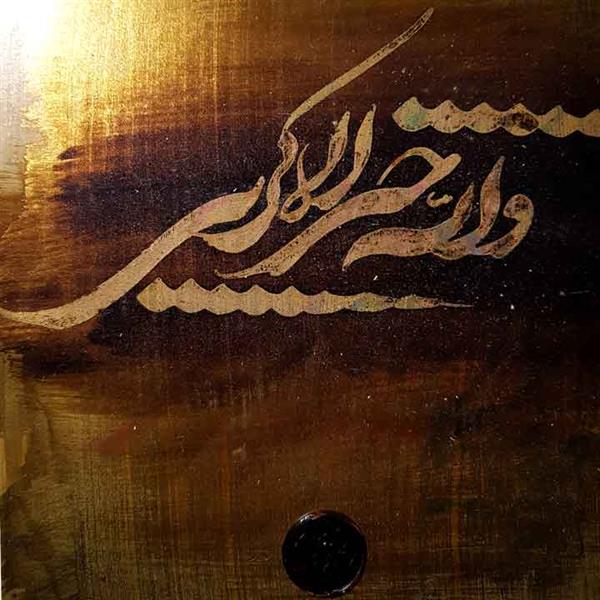 والله خیر الماکرین